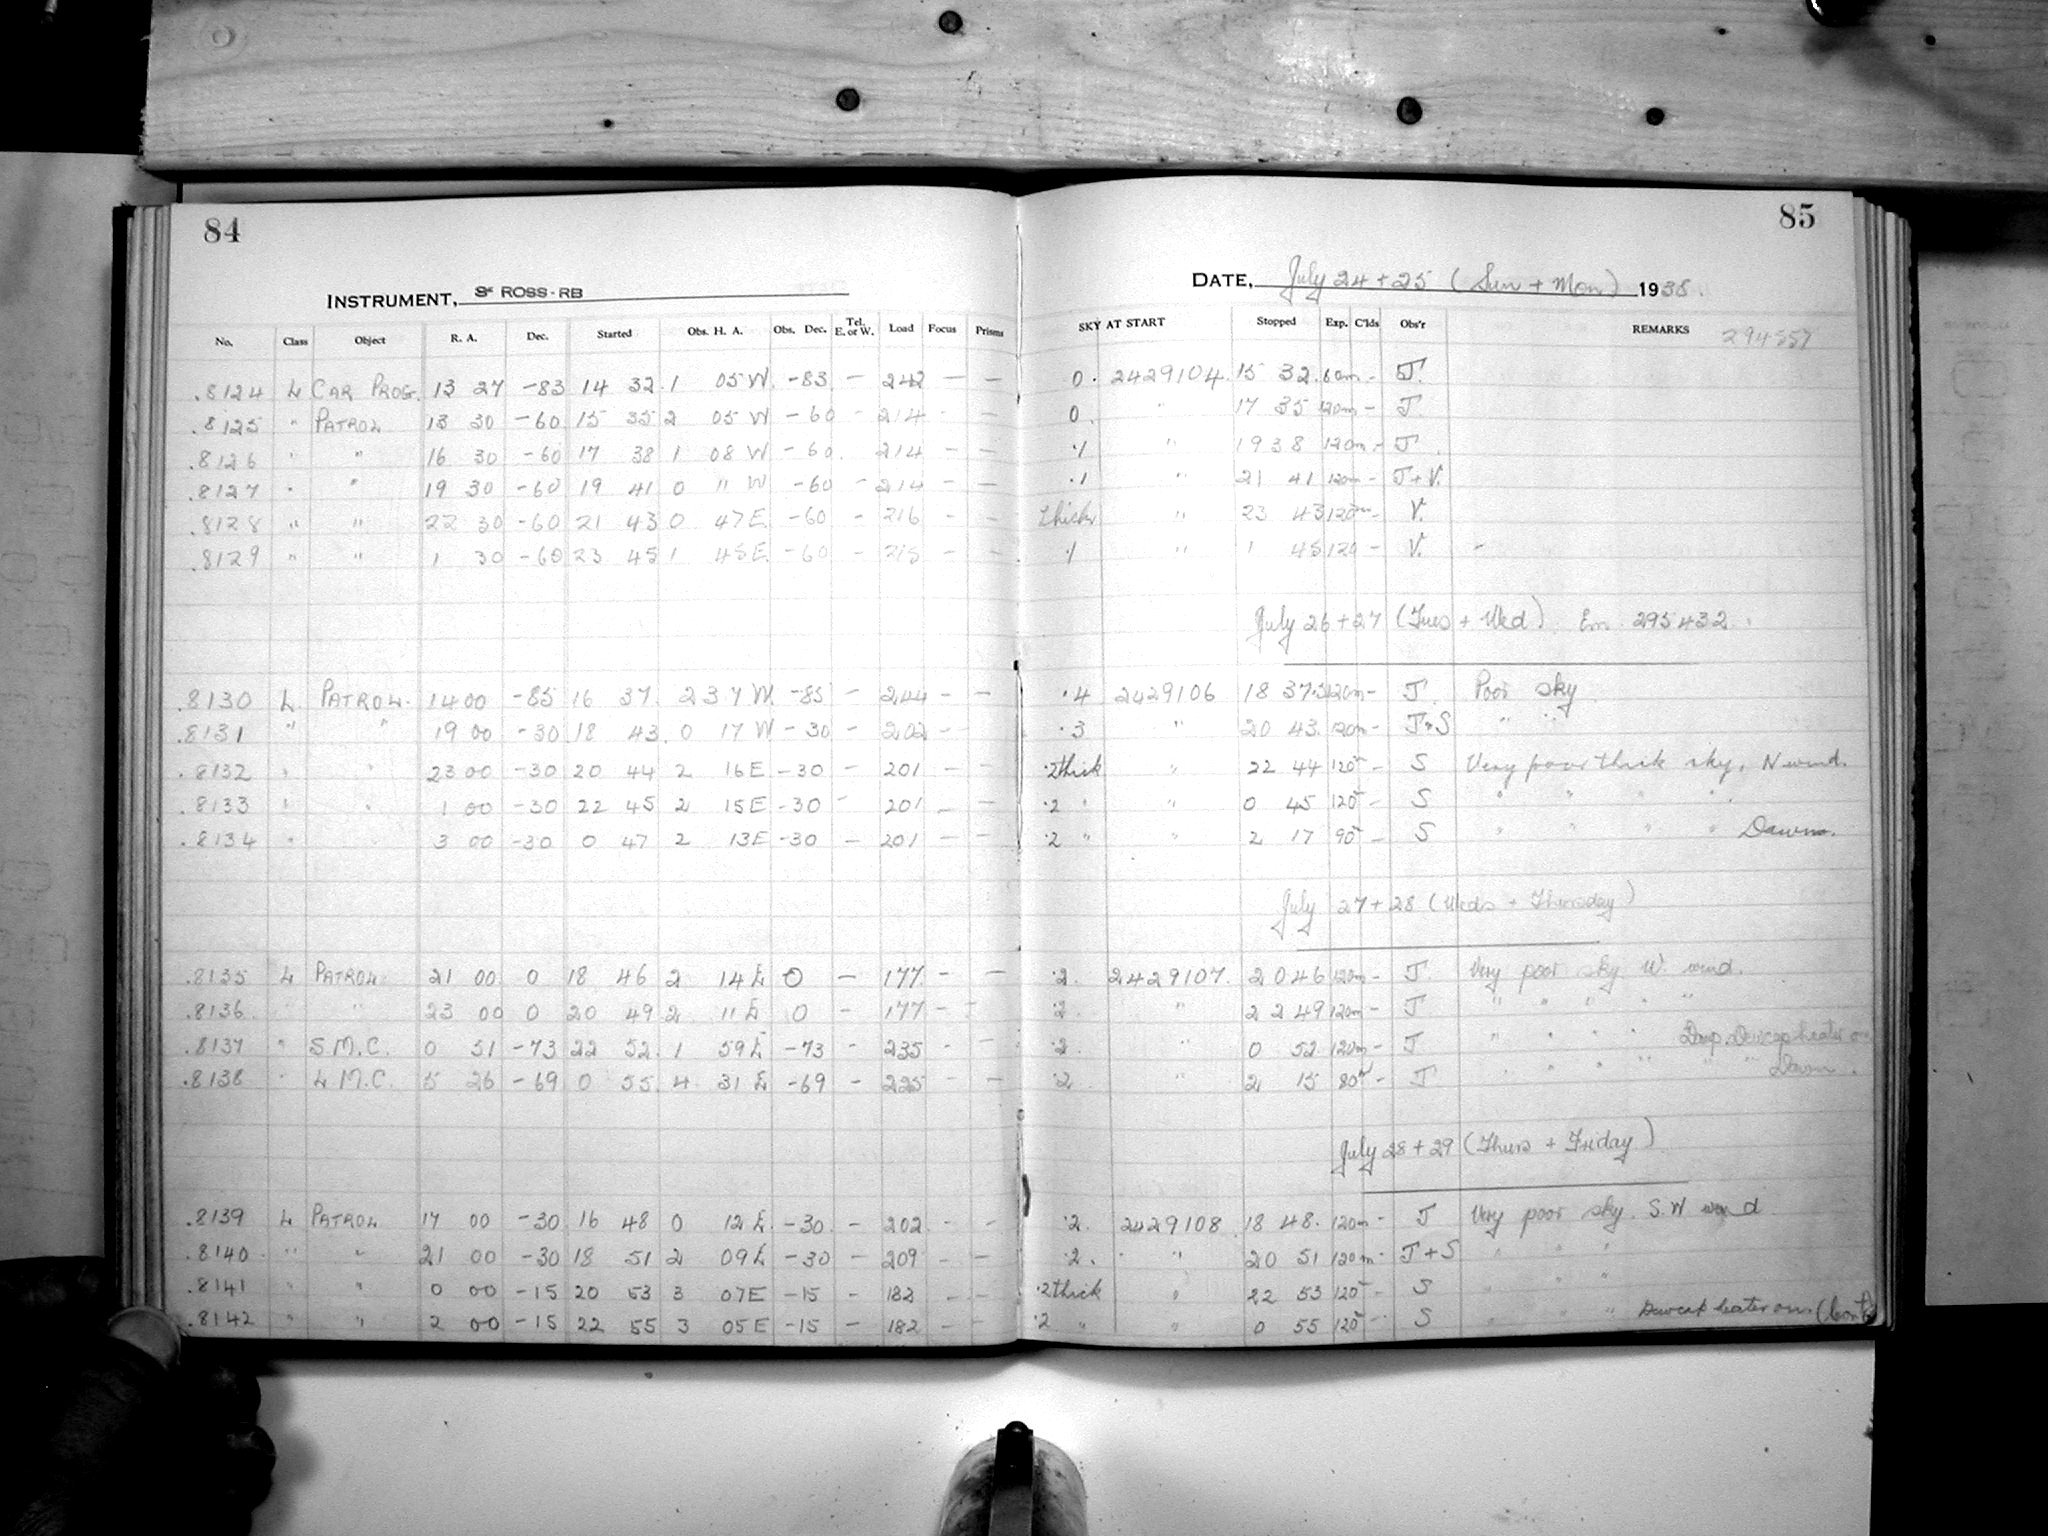 84
85
INSTRUMENT, ROSS-RB
DATE, July 24 + 25 (Sun + Mon) 1938.
No. Class Object R. A. Dec. Started Obs. H. A. Obs. Dec. Tel. E. or W. Load Focus Prisms SKY AT START Stopped Exp. C'lds Obs'r REMARKS
.8124 L CAR PROG. 13 27 -83 14 32. 1 05 W. -83 - 242 - - 0. 2429104. 15 32. 60m - J.
.8125 " PATROL 13 30 -60 15 35 2 05 W -60 - 214 - - 0. " 17 35 120m - J.
.8126 " " 16 30 -60 17 38 1 08 W -60. 214 - - .1 " 19 38 120m - J.
.8127 " " 19 30 -60 19 41 0 11 W -60 - 214 - - .1 " 21 41 120m - J+V.
.8128 " " 22 30 -60 21 43 0 47 E. -60 - 216 - - Thick " 23 43 120m - V.
.8129 " " 1 30 -60 23 45 1 45 E. -60 - 215 - - .1 " 1 45 120 - V. -
July 26 + 27 (Tues + Wed) Em. 295432.
.8130 L PATROL. 14 00 -85 16 37. 2 37 W. -85 - 244 - - .4 2429106 18 37.5 120m - J. Poor sky
.8131 " " 19 00 -30 18 43. 0 17 W -30 - 202 - .3 " 20 43. 120m - J+S " "
.8132 " " 23 00 -30 20 44 2 16 E -30 - 201 - - .2 thick " 22 44 120m - S Very poor thick sky. N wind.
.8133 " " 1 00 -30 22 45 2 15 E -30 - 201 - - .2 " " 0 45 120m - S " " " "
.8134 " " 3 00 -30 0 47 2 13 E -30 - 201 - - .2 " " 2 17 90m - S " " " " Dawn.
July 27 + 28 (Weds + Thursday)
.8135 L PATROL 21 00 0 18 46 2 14 E 0 - 177 - - .2. 2429107. 20 46 120m - J. Very poor sky W. wind.
.8136. " " 23 00 0 20 49 2 11 E 0 - 177 - - .2. " 22 49 120m - J " " " " "
.8137 " S.M.C. 0 51 -73 22 52. 1 59 E -73 - 235 - - .2. " 0 52 120m - J " " " " Dewcap heater on
.8138 " L.M.C. 5 26 -69 0 55. 4 31 E -69 - 225 - - .2 " 2 15 80m - J " " " " " " Dawn.
July 28 + 29 (Thurs + Friday)
.8139 L PATROL 17 00 -30. 16 48 0 12 E. -30. - 202 - - .2. 2429108. 18 48. 120m - J Very poor sky. S.W wind
.8140 " " 21 00 -30 18 51 2 09 E -30 - 209 - - .2. " 20 51 120m - J+S " " "
.8141 " " 0 00 -15 20 53 3 07 E -15 - 182 - - .2 thick " 22 53 120m - S " " "
.8142 " " 2 00 -15 22 55 3 05 E -15 - 182 - - .2 " " 0 55 120m - S " " " Dewcap heater on. (Cont)